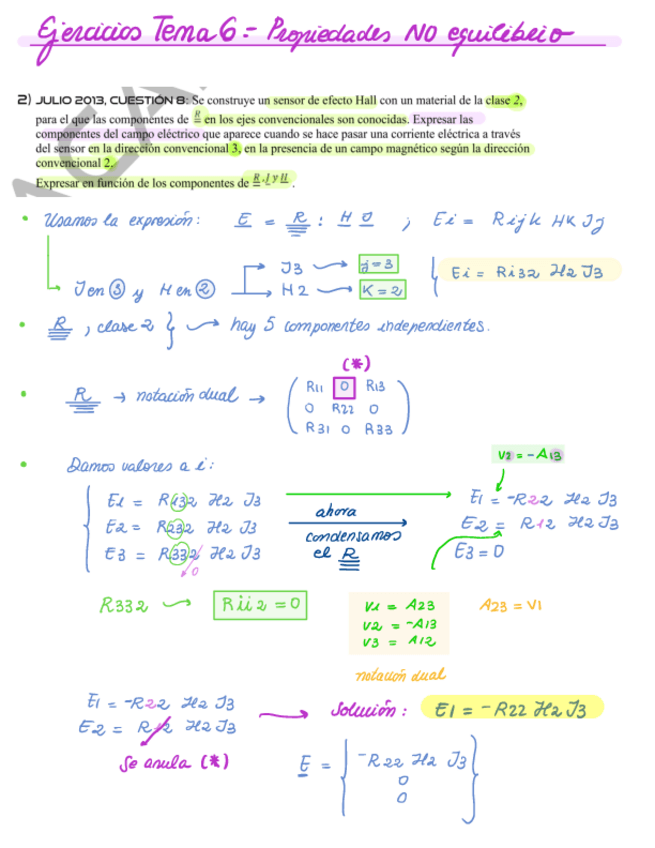 Ejercicios Tema 6 = Propiedades NO equilibrio
2) JULIO 2013, CUESTIÓN 8: Se construye un sensor de efecto Hall con un material de la clase 2,
para el que las componentes de R en los ejes convencionales son conocidas. Expresar las
componentes del campo eléctrico que aparece cuando se hace pasar una corriente eléctrica a través
del sensor en la dirección convencional 3, en la presencia de un campo magnético según la dirección
convencional 2.
Expresar en función de los componentes de R, J y H.
• Usamos la expresión: E = R : H J ; Ei = Rijk HK Jj
J en ③ y H en ② J3 → j=3
H2 → K=2
Ei = Ri32 H2 J3
• R, clase 2 } → hay 5 componentes independientes.
(*)
• R → notación dual → ( R11 0 R13
0 R22 0
R31 0 R33 )
• Damos valores a i:
V2 = -A13
E1 = R132 H2 J3
E2 = R232 H2 J3
E3 = R332 H2 J3
0
ahora
condensamos
el R
E1 = -R22 H2 J3
E2 = R12 H2 J3
E3 = 0
R332 → Rii2 = 0
V1 = A23
V2 = -A13
V3 = A12
A23 = V1
notación dual
E1 = -R22 H2 J3
E2 = R12 H2 J3
Se anula (*)
Solución: E1 = -R22 H2 J3
E = { -R22 H2 J3
0
0 }